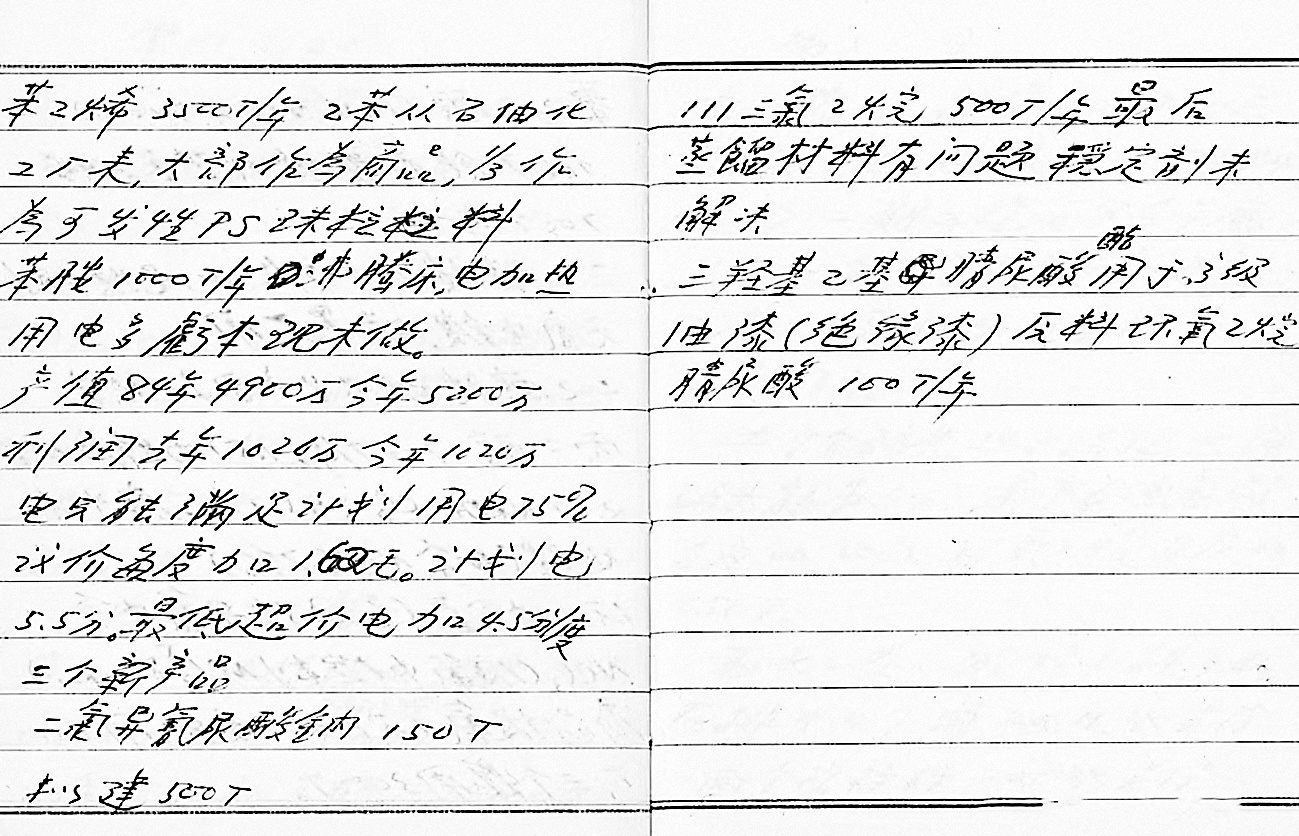 苯乙烯 3500T/年 乙苯从石油化
工厂来,大部作为商品,少作
为可发性PS珠粒粒料
苯胺 1000T/年 沸腾床,电加热
用电多虧本现未做。
产值84年4900万今年5200万
利润去年1020万今年1020万
电只能满足计划用电75%
议价每度加1.6毛。计划电
5.5分。最低超价电加4.5分/度
三个新产品
二氯异氰尿酸钠 150T
拟建 500T
111三氯乙烷 500T/年 最后
蒸餾材料有问题 穩定剂未
解决
三羟基乙基睛尿酸酯用于高级
油漆(绝缘漆)原料环氧乙烷
睛尿酸 100T/年